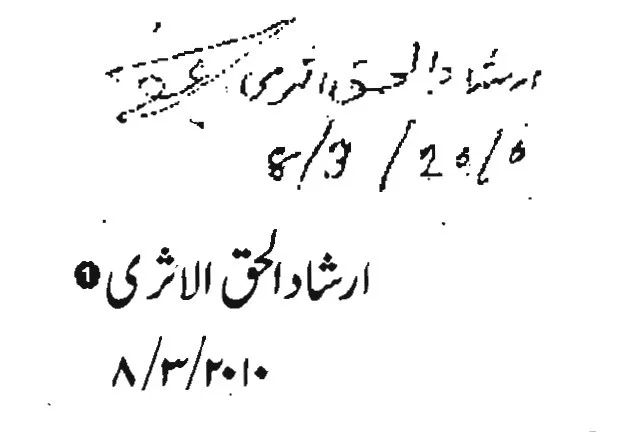 ارشاد الحق اثری
8/3/2010
ارشاد الحق الاثری ❶
۸/۳/۲۰۱۰